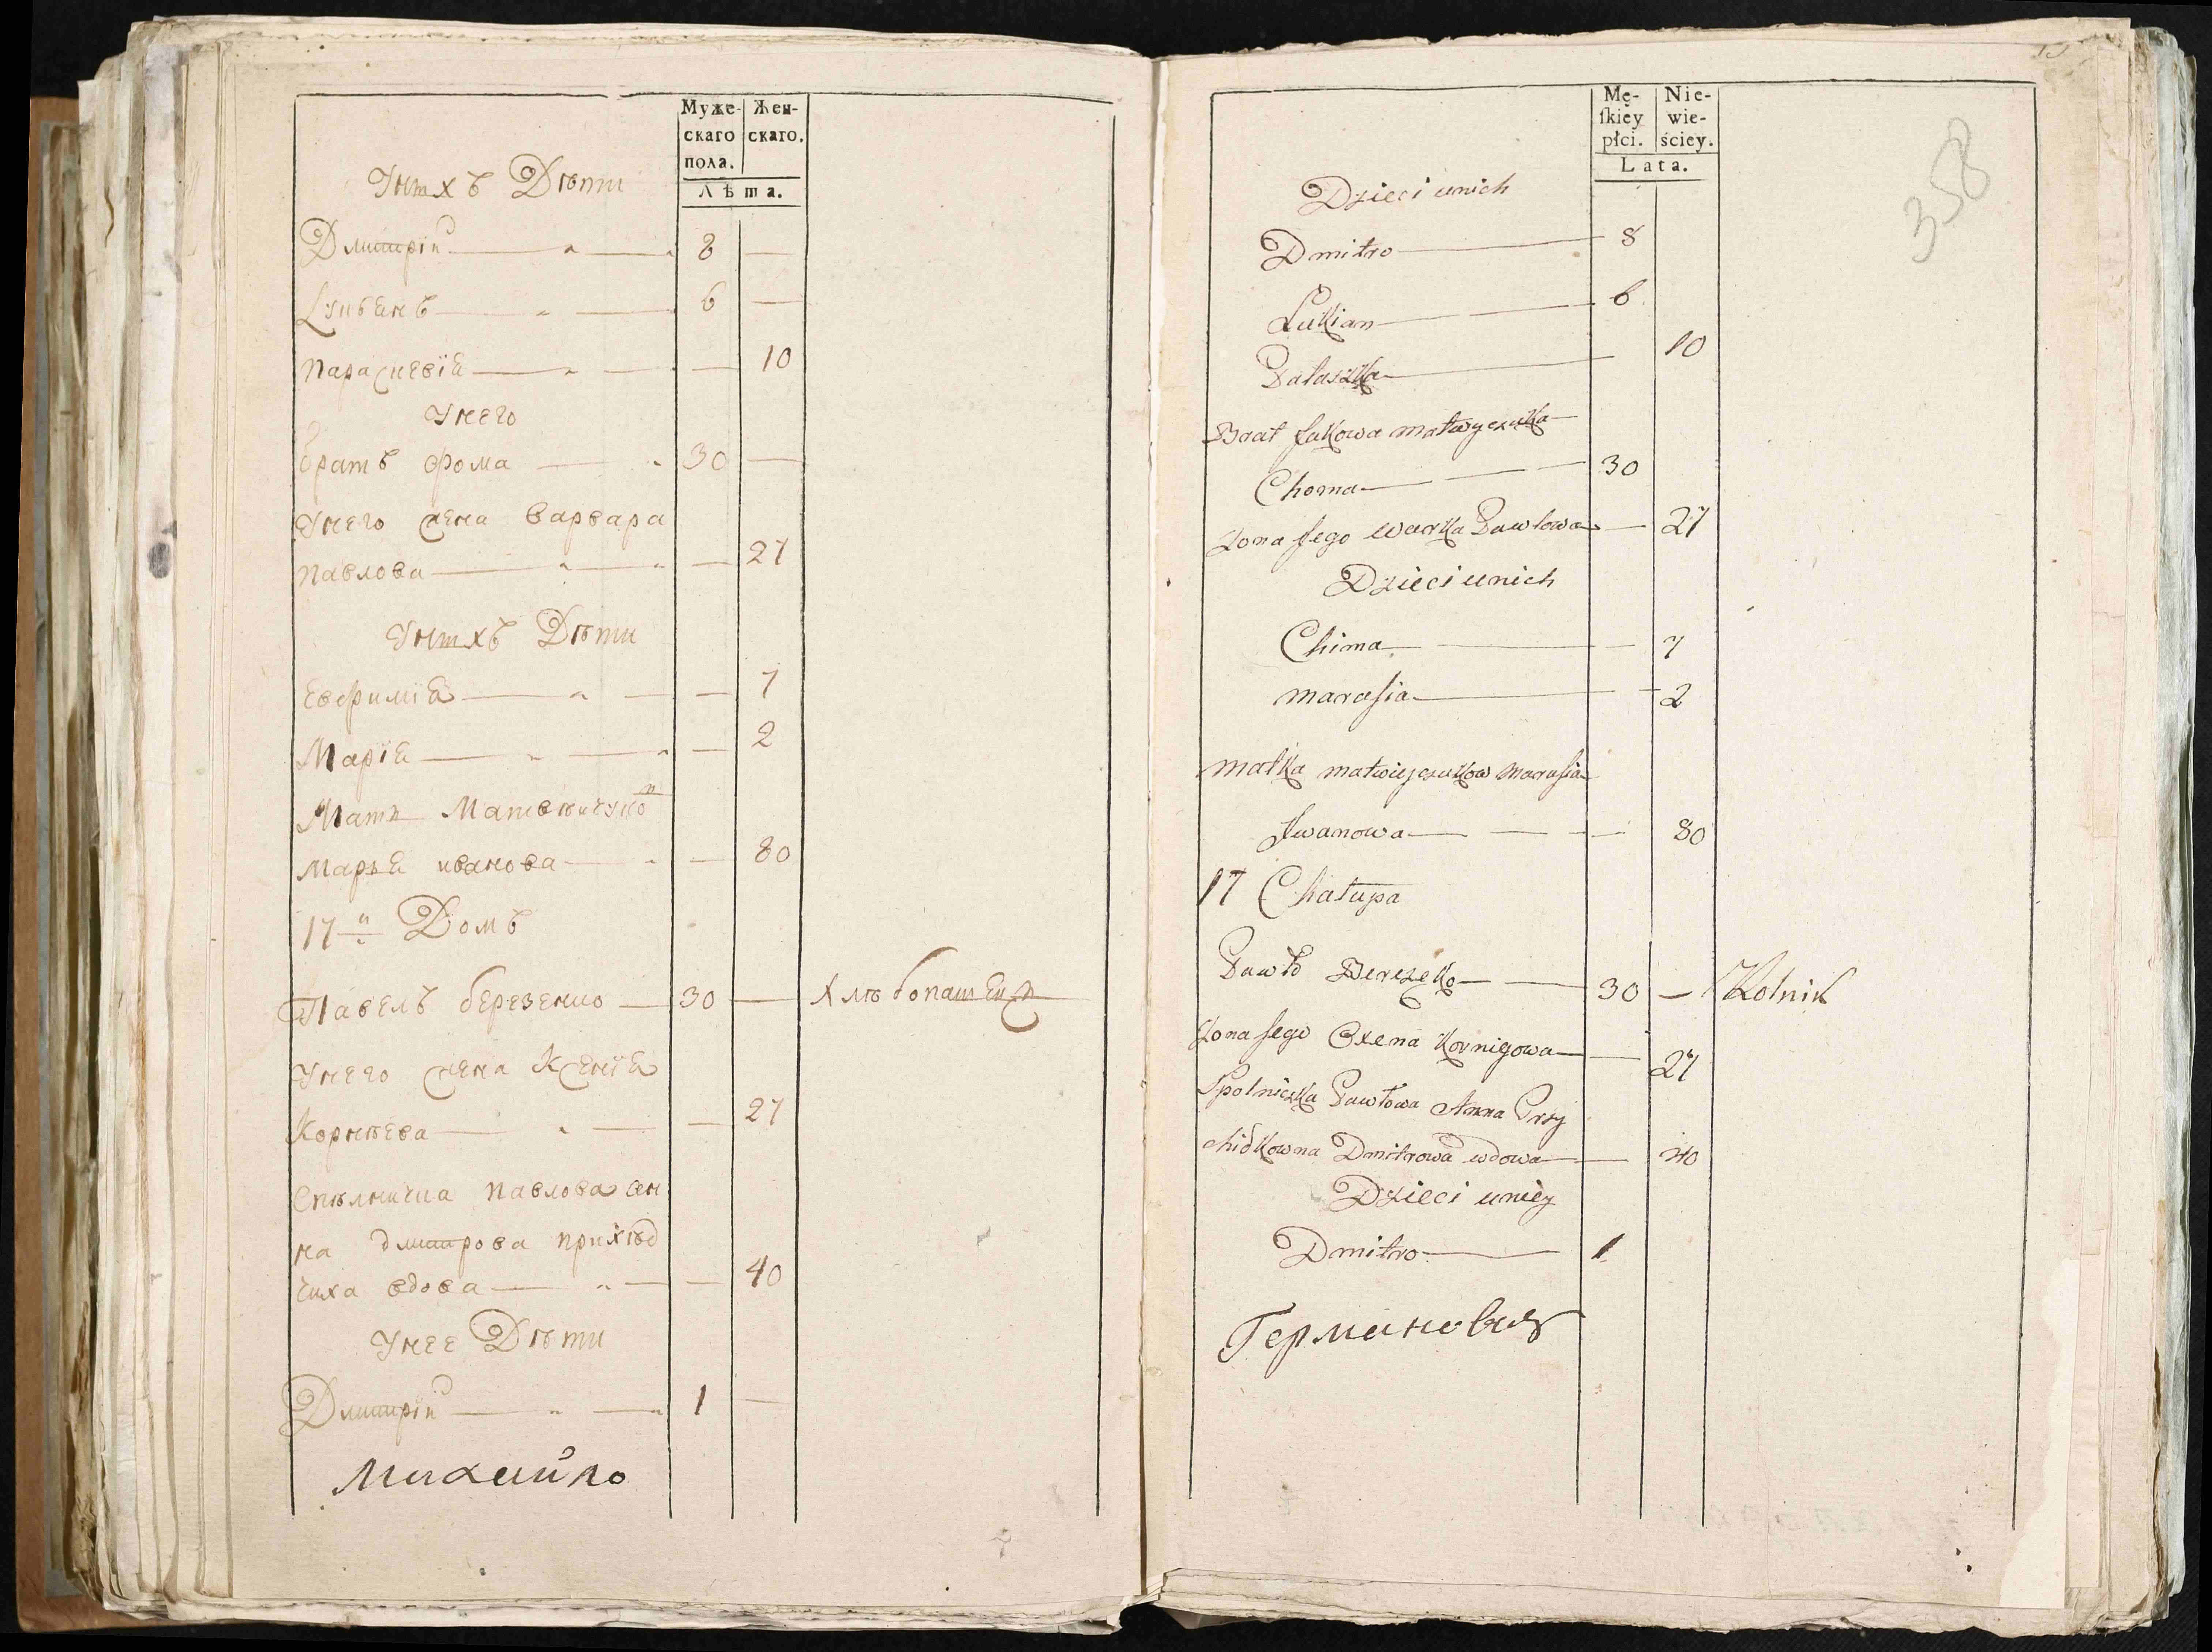 Муже-
скаго
пола.
Жен-
скаго.
Лѣта.
Унихъ Дѣти
Дмитрій 8 —
Лукьянъ 6 —
Параскевія — 10
Унего
братъ Фома 30 —
Унего жена варвара
павлова — 27
Унихъ Дѣти
Евфимія — 7
Марія — 2
Мати Матвѣйчуковъ
марья иванова — 80
17й Домъ
Павелъ березенко 30 — Хлѣбопашецъ
Унего жена Ксенія
Корнѣева — 27
Спѣлничка павлова ан
на дмитрова прихѣд
чиха вдова — 40
Унее Дѣти
Дмитрій 1 —
Михайло
Mę-
ſkiey
płci.
Nie-
wie-
ściey.
Lata.
358
Dzieci unich
Dmitro 8
Lukian 6
Palaszka 10
Brat Jakowa matwyczuka
Choma 30
Zona Jego warka Pawlowa — 27
Dzieci unich
Chima — 7
marasia — 2
matka matwiejczukow marasia
Jwanowa — 80
17 Chałupa
Pawło Berezeko 30 — Rolnik
Zona Jego Oxena Kornigowa — 27
Spolniczka Pawłowa Anna Przy
chidkowna Dmitrowa wdowa — 40
Dzieci uniey
Dmitro 1
Германовичъ